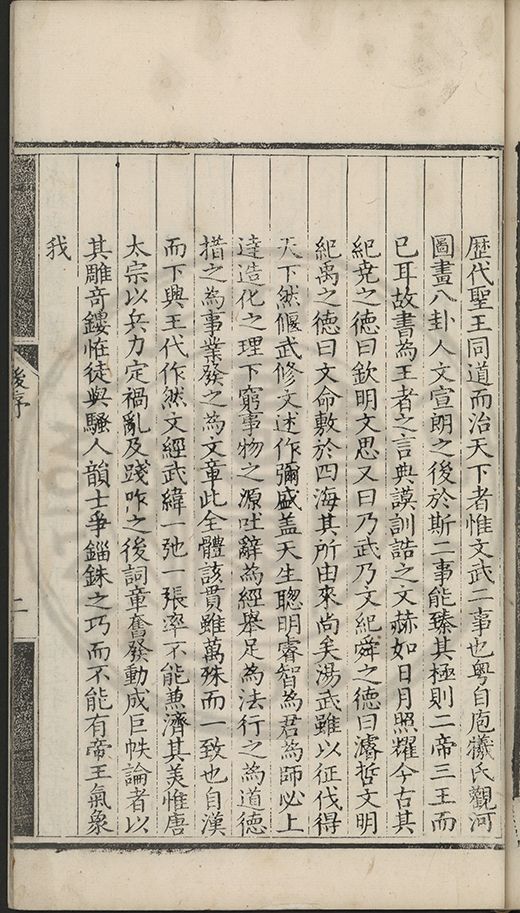 歷代聖王同道而治天下者惟文武二事也粤自庖犧氏觀河
圖畫八卦人文宣朗之後於斯二事能臻其極則二帝三王而
已耳故書為王者之言典謨訓誥之文赫如日月照耀今古其
紀尭之德曰欽明文思又曰乃武乃文紀舜之德曰濬哲文明
紀禹之德曰文命敷於四海其所由來尚矣湯武雖以征伐得
天下然偃武修文述作彌盛盖天生聰明睿智為君為師必上
達造化之理下窮事物之源吐辭為經舉足為法行之為道德
措之為事業發之為文章此全體該貫雖萬殊而一致也自漢
而下興王代作然文經武緯一弛一張率不能兼濟其美惟唐
太宗以兵力定禍亂及踐阼之後詞章奮發動成巨帙論者以
其雕竒鏤恠徒與騷人韻士爭錙銖之巧而不能有帝王氣象
我
後序
二